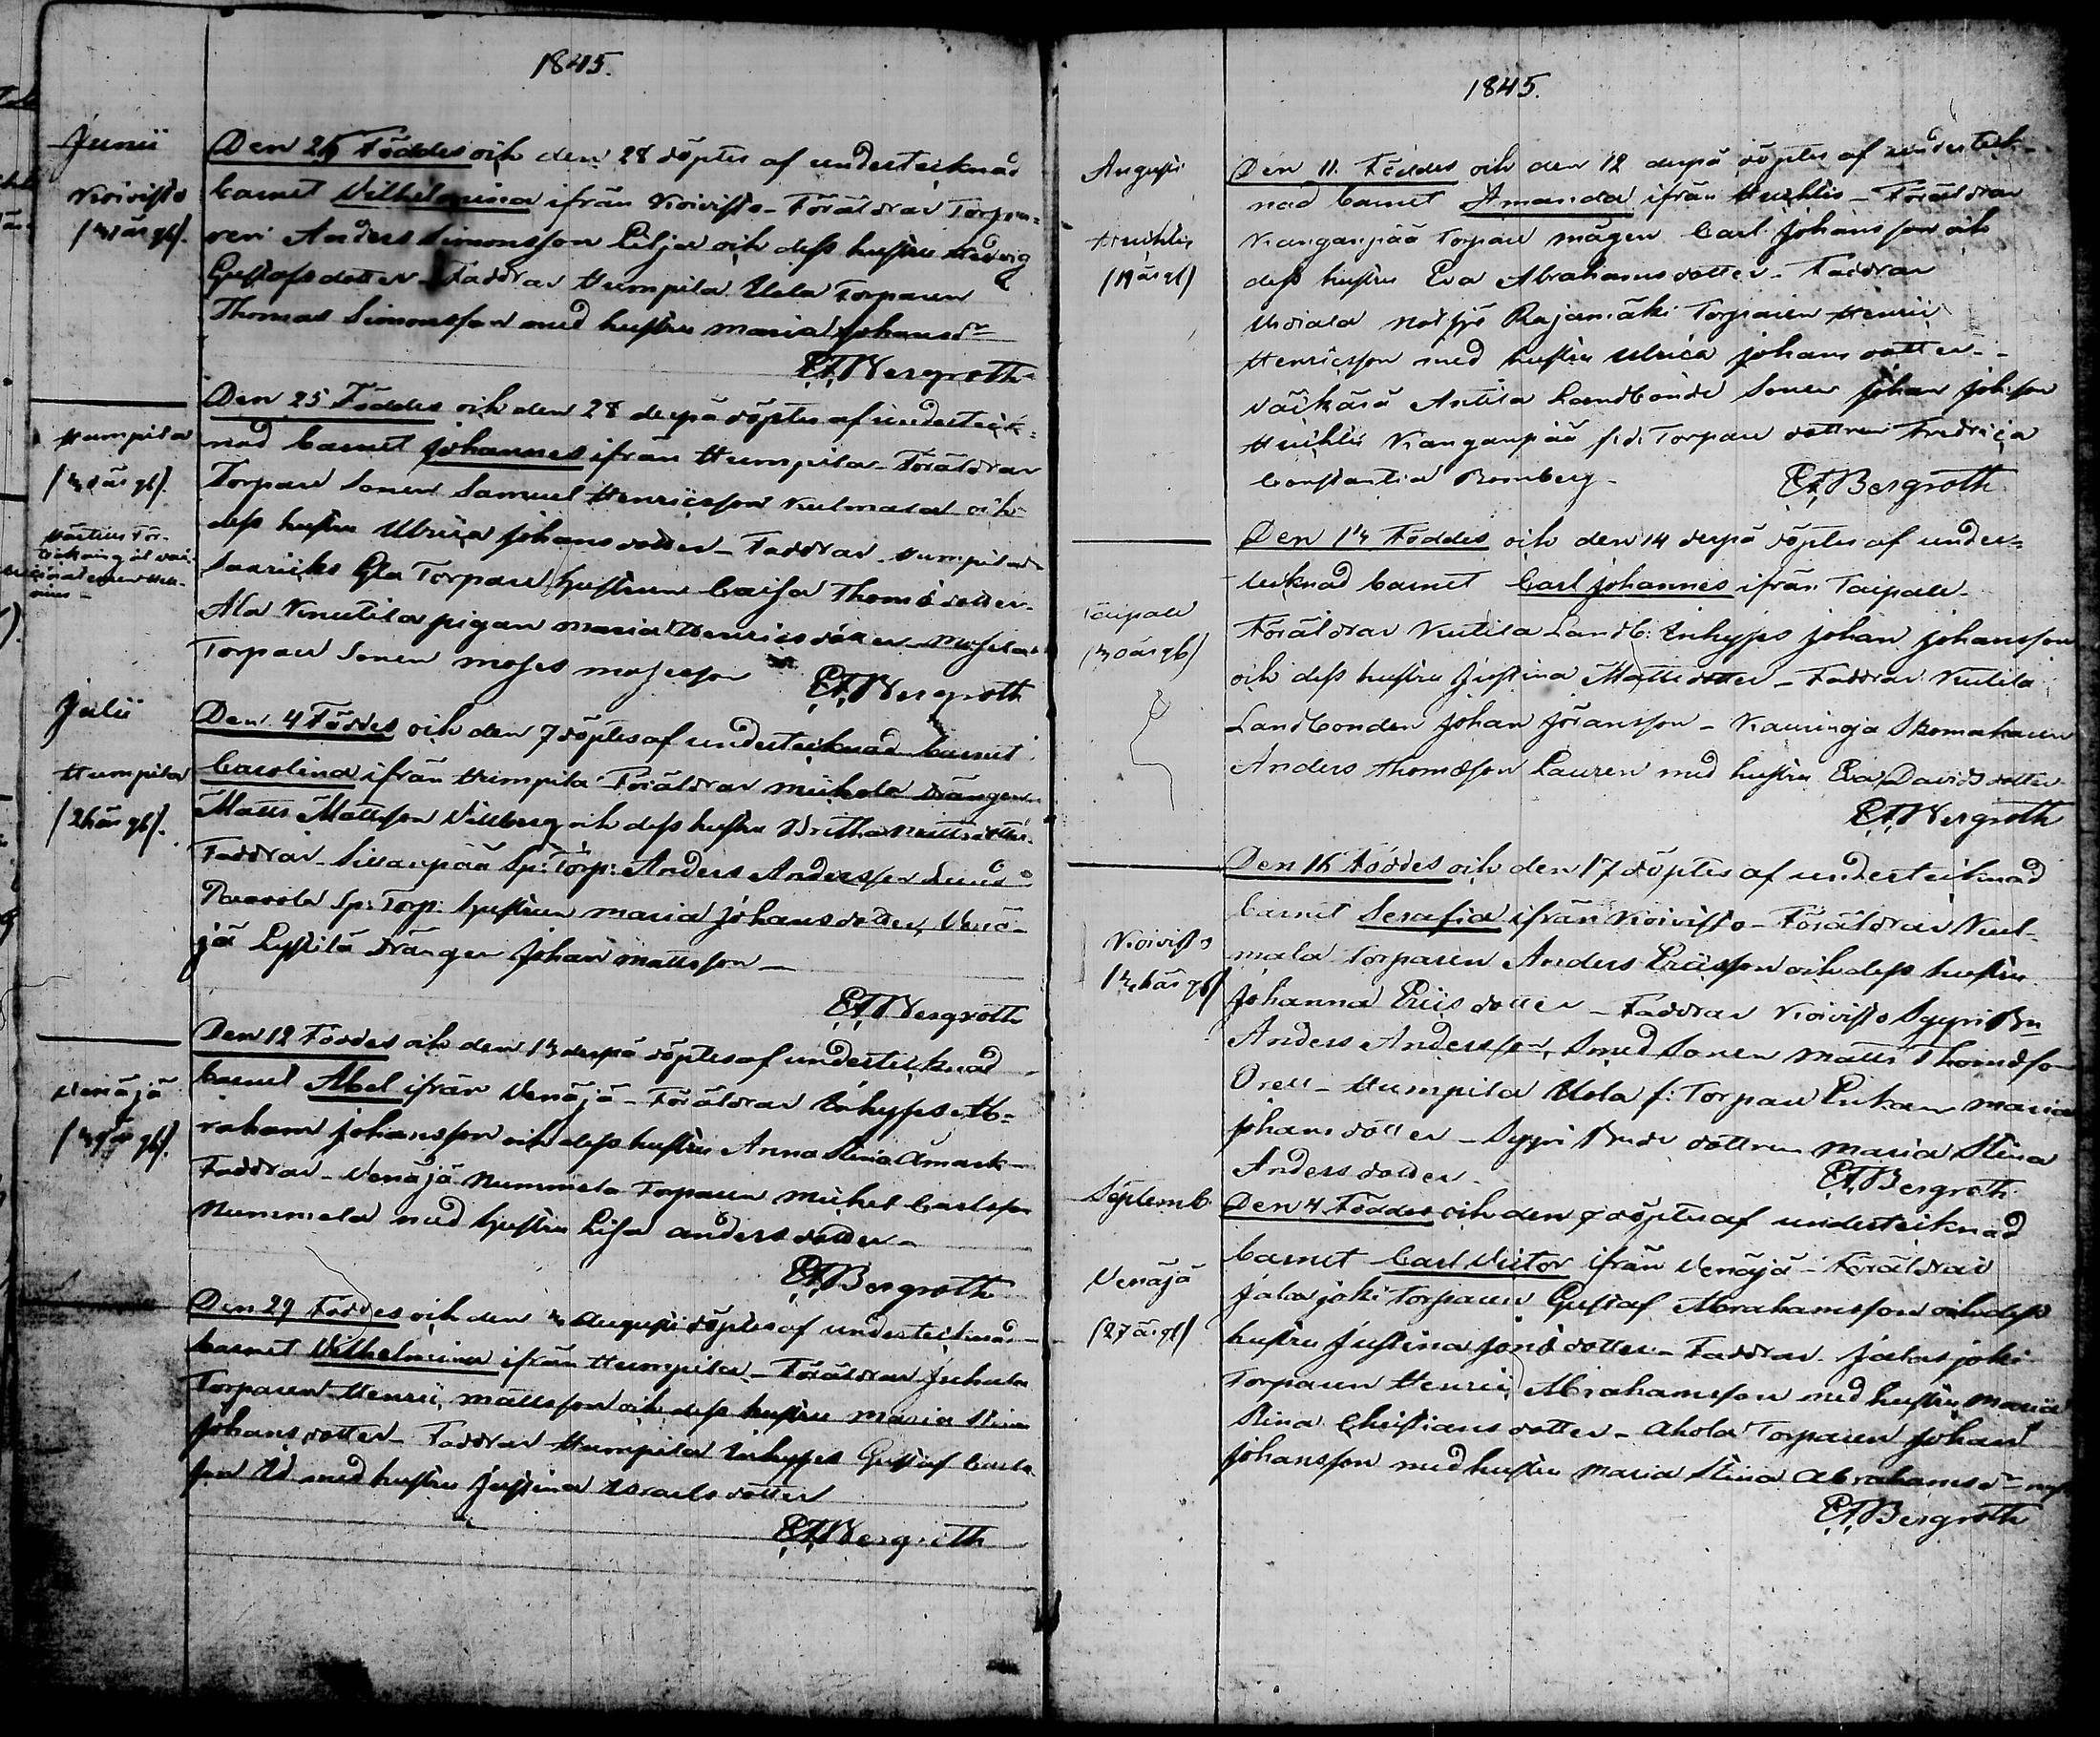 1845.
Junii
Koivisto
Den 26 Föddes och den 28 döptes af undertecknad
barnet Vilhelmina ifrån Koivisto - Föräldrar Torpa-
ren Anders Simonsson Lilja och dess hustru Hedvig
Gustafsdotter - Faddrar Humpila Uola Torparen
Thomas Simonsson med hustru Maria Johansdr
EABergroth
Humpila
Den 25 Föddes och den 28 derpå döptes af underteck-
nad barnet Johannes ifrån Humpila - Föräldrar
Torpare Sonen Samuel Henricsson Kulmala och
dess hustru Ulrica Johansdotter - Faddrar Humpila
Torpare hustrun Caisa Thomsdotter
Ala Knutila pigan Maria Henricsdotter
Torpare Sonen Moses Mosesson
EABergroth
Julii
Humpila
(26 år gl).
Den 4 Föddes och den 7 döptes af undertecknad barnet
Carolina ifrån Humpila Föräldrar Mickola Drängen
Matts Mattsson Villberg och dess hustru Britha Mattsdotter
Faddrar - Sillanpää Sp: Torp: Anders Andersson Lund
Paavola Sp: Torp: hustrun Maria Johansdotter, Venä-
jä Lystilä Drängen Johan Mattsson
EABergroth
Venäjä
Den 12 Föddes och den 13 derpå döptes af undertecknad
barnet Abel ifrån Venäjä - Föräldrar Inhyses Ab-
raham Johansson och dess hustru Anna Stina Amark
Faddrar - Venäjä Nummela Torparen Michel Carlsson
Nummela med hustru Lisa Andersdotter
EABergroth
Den 29 Föddes och den 3 Augusti döptes af undertecknad
barnet Vilhelmina ifrån Humpila - Föräldrar Juhala
Torparen Henric Mattsson och dess hustru Maria Stina
Johansdotter - Faddrar Humpila Inhyses Gustaf Carls-
son Id med hustru Justina Israelsdotter
EABergroth
1845.
Augusti
Huhtis
(19 år gl)
Den 11. Föddes och den 12 derpå döptes af underteck-
nad barnet Amanda ifrån Huhtis - Föräldrar
Kanganpää Torpare mågen Carl Johansson och
dess hustru Eva Abrahamsdotter - Faddrar
Rajamäki Torparen Henric
Henricsson med hustru Ulrica Johansdotter -
Väikärä Antila Landbonde Sonen Johan Johsson
Huhtis Kanganpää f.d. Torpare dottren Fredrica
Constantia Romberg -
EABergroth
Taipale
(30 år gl)
Den 13 Föddes och den 14 derpå döptes af under-
tecknad barnet Carl Johannes ifrån Taipale -
Föräldrar Kutila Landb: Inhyses Johan Johansson
och dess hustru Justina Mattsdotter - Faddrar Kutila
Landbonden Johan Jöransson - Kauringa Skomakaren
Anders Thomsson Lauren med hustru Eva Davidsdotter
EABergroth
Koivisto
(36 år gl)
Den 16 Föddes och den 17 döptes af undertecknad
barnet Serafia ifrån Koivisto - Föräldrar Kul-
mala Torparen Anders Ericsson och dess hustru
Johanna Ericsdotter - Faddrar Koivisto Syyri Bn
Anders Andersson, Smed Sonen Matts Thomsson
Orell - Humpila Uola f: Torpare Enkan Maria
Johansdotter - Syyri Bonde dottren Maria Stina
Andersdotter -
EABergroth
Septemb
Venäjä
(27 år gl)
Den 4 Föddes och den 7 döptes af undertecknad
barnet Carl Victor ifrån Venäjä - Föräldrar
Jalasjoki Torparen Gustaf Abrahamsson och dess
hustru Justina Jonsdotter - Faddrar Jalasjoki
Torparen Henric Abrahamsson med hustru Maria
Stina Christiansdotter - Ahola Torparen Johan
Johansson med hustru Maria Stina Abrahamsdr
EABergroth